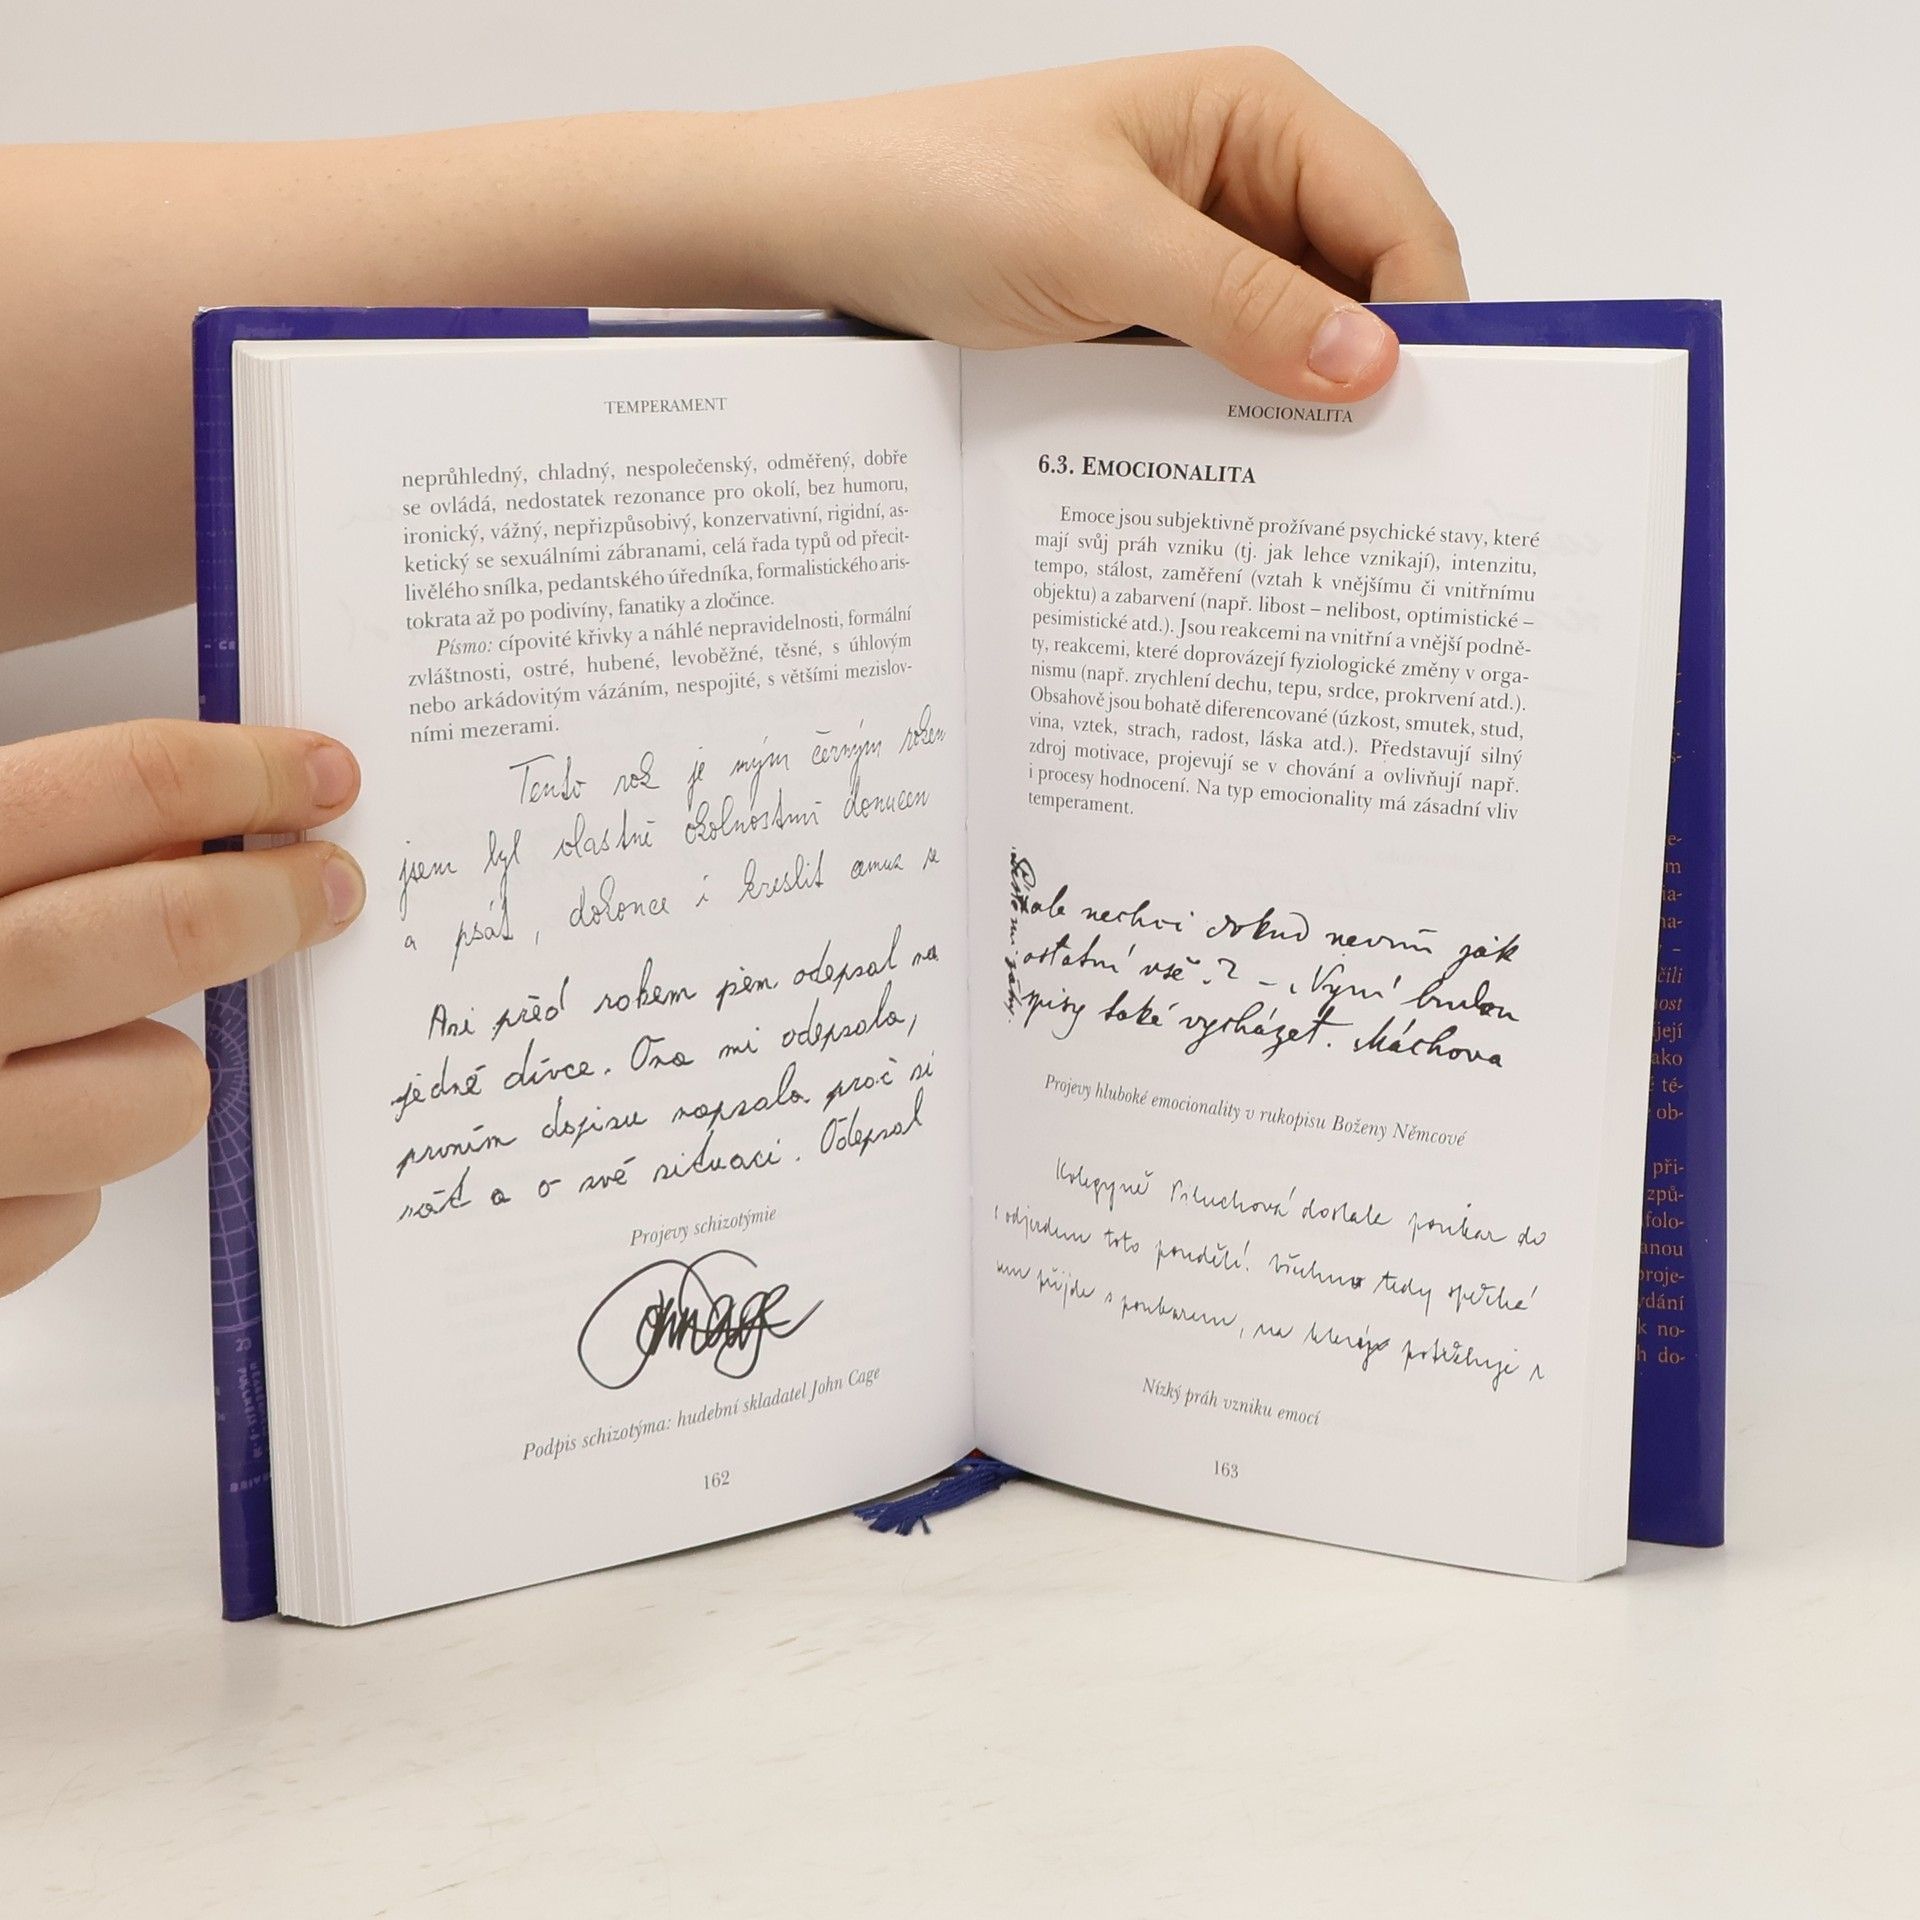 TEMPERAMENT
neprůhledný, chladný, nespolečenský, odměřený, dobře
se ovládá, nedostatek rezonance pro okolí, bez humoru,
ironický, vážný, nepřizpůsobivý, konzervativní, rigidní, as-
ketický se sexuálními zábranami, celá řada typů od přecit-
livělého snílka, pedantského úředníka, formalistického aris-
tokrata až po podivíny, fanatiky a zločince.
Písmo: cípovité křivky a náhlé nepravidelnosti, formální
zvláštnosti, ostré, hubené, levoběžné, těsné, s úhlovým
nebo arkádovitým vázáním, nespojité, s většími mezislov-
ními mezerami.
Tento rok je mým černým rokem
jsem byl vlastně okolnostmi donucen
a psát, dokonce i kreslit se
Ani před rokem jsem odepsal na
jedné dívce. Ona mi odepsala,
prvním dopisu napsala proč si
a o své situaci. Odepsal
Projevy schizotýmie
John Cage
Podpis schizotýma: hudební skladatel John Cage
162
EMOCIONALITA
6.3. EMOCIONALITA
Emoce jsou subjektivně prožívané psychické stavy, které
mají svůj práh vzniku (tj. jak lehce vznikají), intenzitu,
tempo, stálost, zaměření (vztah k vnějšímu či vnitřnímu
objektu) a zabarvení (např. libost – nelibost, optimistické –
pesimistické atd.). Jsou reakcemi na vnitřní a vnější podně-
ty, reakcemi, které doprovázejí fyziologické změny v orga-
nismu (např. zrychlení dechu, tepu, srdce, prokrvení atd.).
Obsahově jsou bohatě diferencované (úzkost, smutek, stud,
vina, vztek, strach, radost, láska atd.). Představují silný
zdroj motivace, projevují se v chování a ovlivňují např.
i procesy hodnocení. Na typ emocionality má zásadní vliv
temperament.
ale nechci dokud nevím jak
ostatní vše? – Nyní budou
spisy také vycházet. Máchova
Projevy hluboké emocionality v rukopisu Boženy Němcové
Kolegyně dostala poukaz do
odjezdem toto pondělí. Všichni tedy
přijde s poukazem, na který potřebuje
Nízký práh vzniku emocí
163